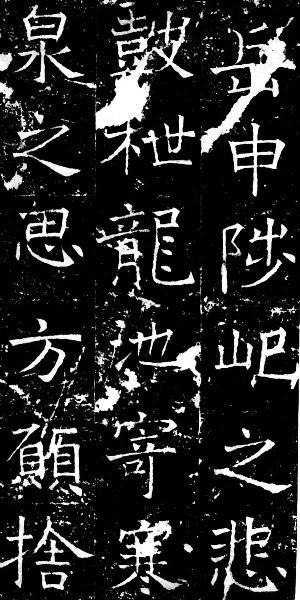 岳申陟屺之悲
鼓枻龍池寄寒
泉之思方願捨